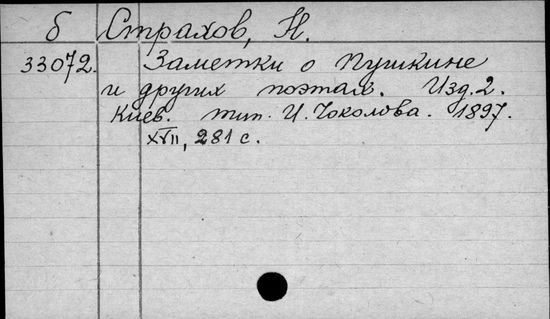 б Страхов, Н.
33072. Заметки о Пушкине
и других поэтах. Изд. 2.
Киев. тип. И. Чоколова. 1897.
XVII, 281 с.